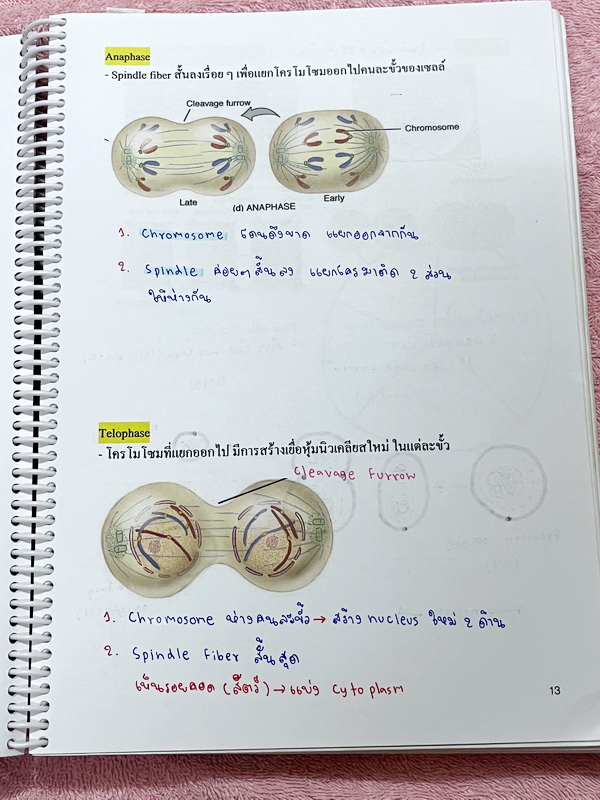 Anaphase
- Spindle fiber สั้นลงเรื่อย ๆ เพื่อแยกโครโมโซมออกไปคนละขั้วของเซลล์
Cleavage furrow
Chromosome
Late
(d) ANAPHASE
Early
1. Chromosome โดนดึงขาด แยกออกจากกัน
2. Spindle ค่อยๆ สั้นลง แยกโครมาติด 2 ส่วน
ให้ห่างกัน
Telophase
- โครโมโซมที่แยกออกไป มีการสร้างเยื่อหุ้มนิวเคลียสใหม่ ในแต่ละขั้ว
Cleavage Furrow
1. Chromosome ห่างคนละขั้ว → สร้าง nucleus ใหม่ 2 ด้าน
2. Spindle Fiber สิ้นสุด
เห็นรอยคอด (สัตว์) → แบ่ง Cytoplasm
13